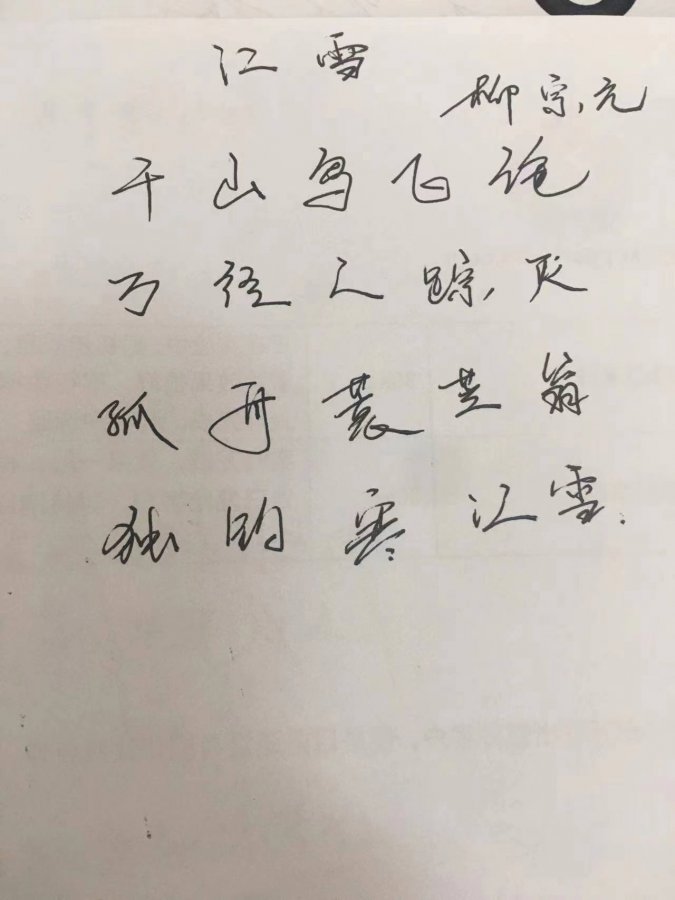 江雪
柳宗元
千山鸟飞绝
万径人踪灭
孤舟蓑笠翁
独钓寒江雪.